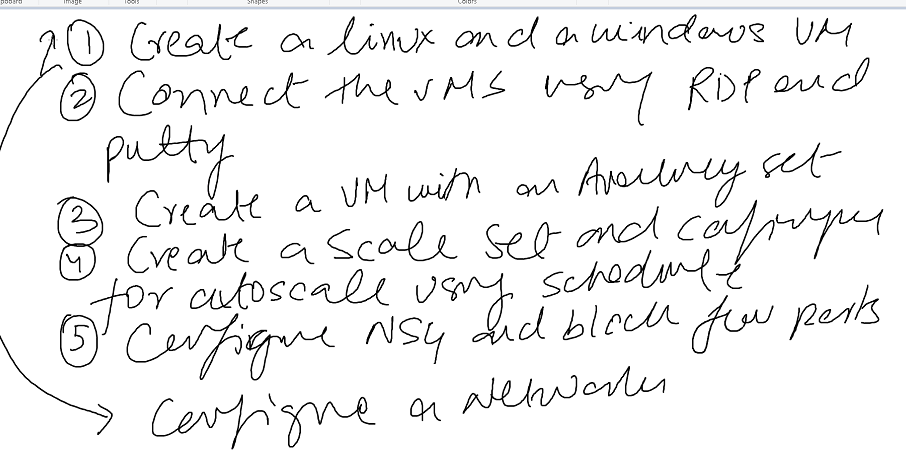 Clipboard Image Tools Shapes Colors
① Create a linux and a windows VM
② Connect the VMS using RDP and
putty
③ Create a VM with an Availability set
④ Create a Scale Set and configure
for autoscale using schedule
⑤ Configure NSG and block few ports
Configure a Network